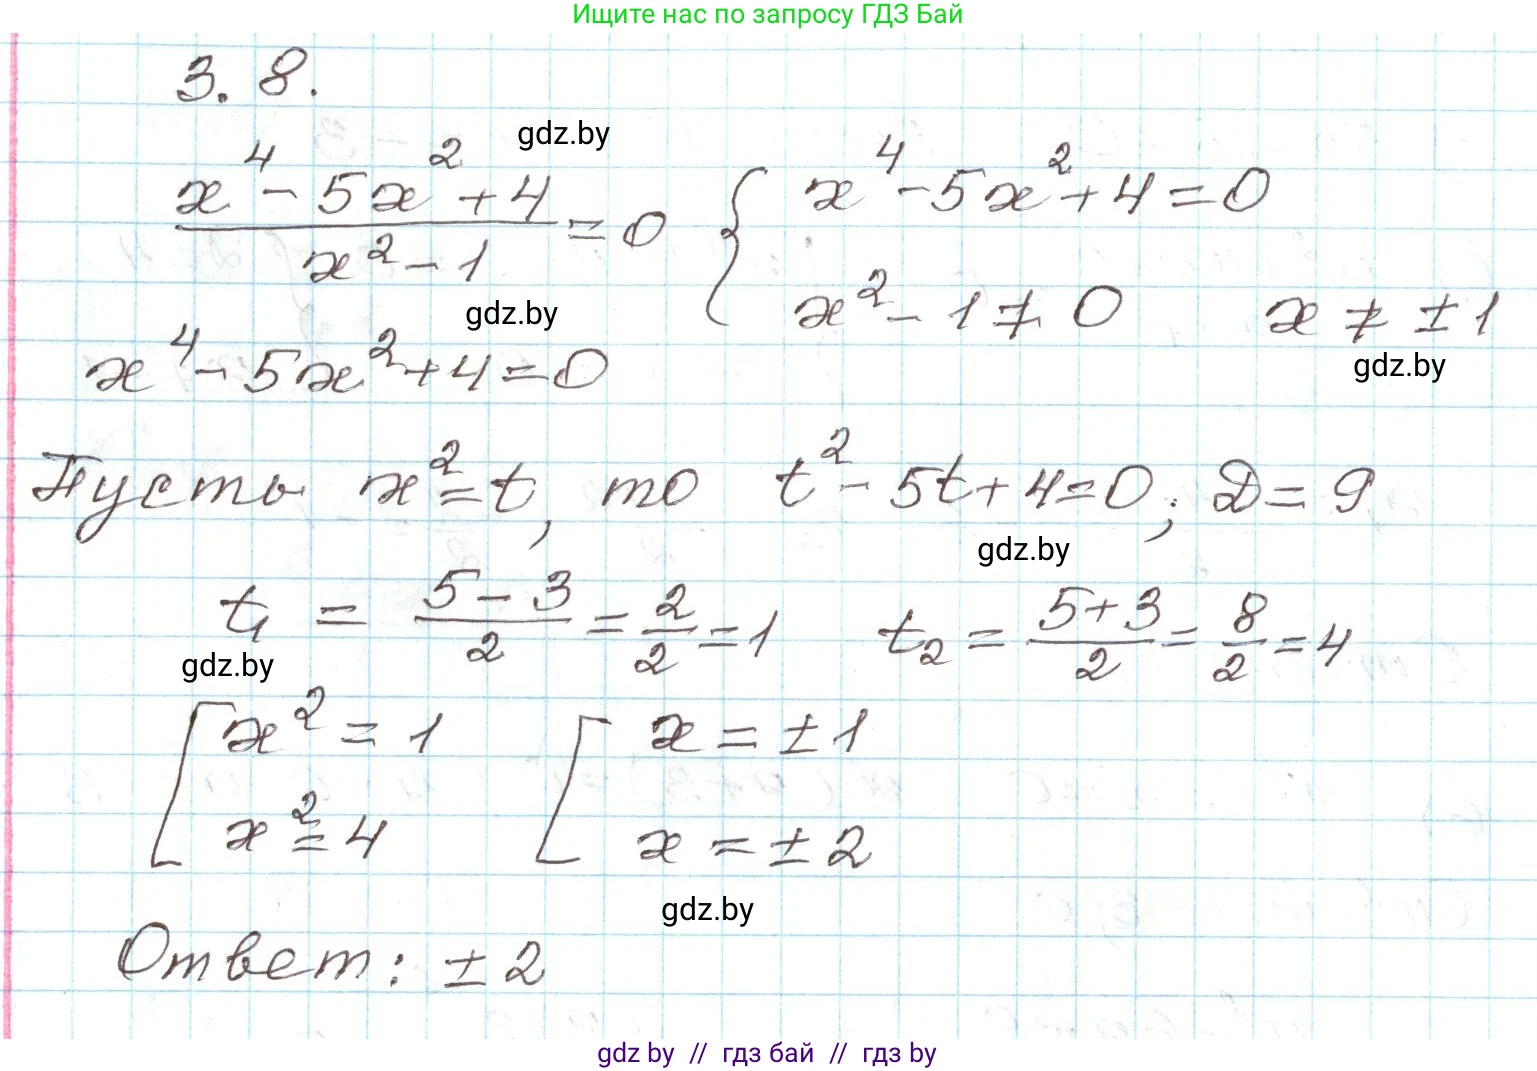 Ищите нас по запросу ГДЗ Бай
3.8.
gdz.by
(x⁴ - 5x² + 4)/(x² - 1) = 0 { x⁴ - 5x² + 4 = 0
x² - 1 ≠ 0 x ≠ ±1
gdz.by
gdz.by
x⁴ - 5x² + 4 = 0
Пусть x² = t, то t² - 5t + 4 = 0; D = 9
gdz.by
t₁ = (5 - 3)/2 = 2/2 = 1 t₂ = (5 + 3)/2 = 8/2 = 4
gdz.by
[ x² = 1 [ x = ±1
x² = 4 x = ±2
gdz.by
Ответ: ±2
gdz by // гдз бай // гдз by